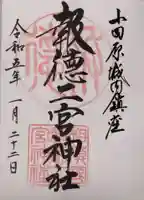 小田原城内鎮座
報徳二宮神社
令和五年 一月二十二日